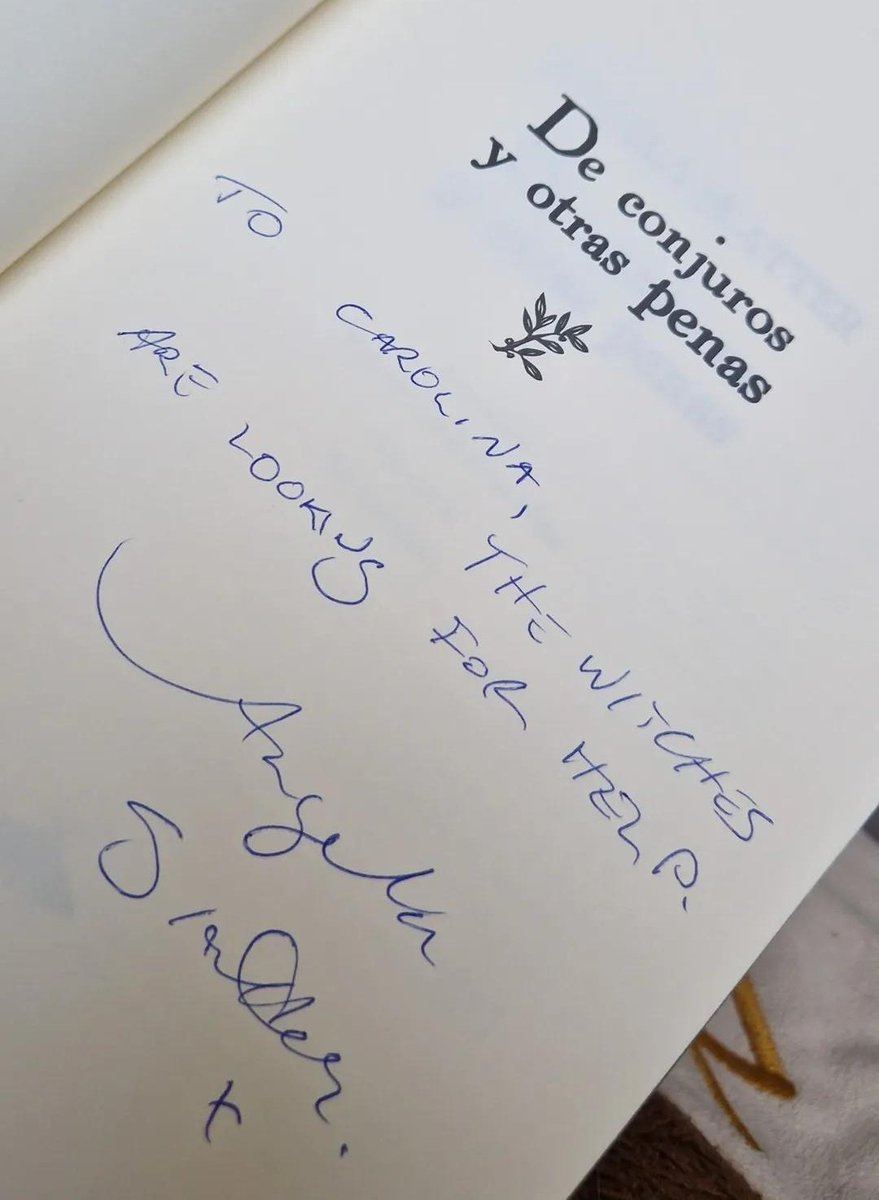 De conjuros
y otras penas
TO CAROLINA, THE WITCHES
ARE LOOKING FOR HELP.
Angela
Slatter.
x